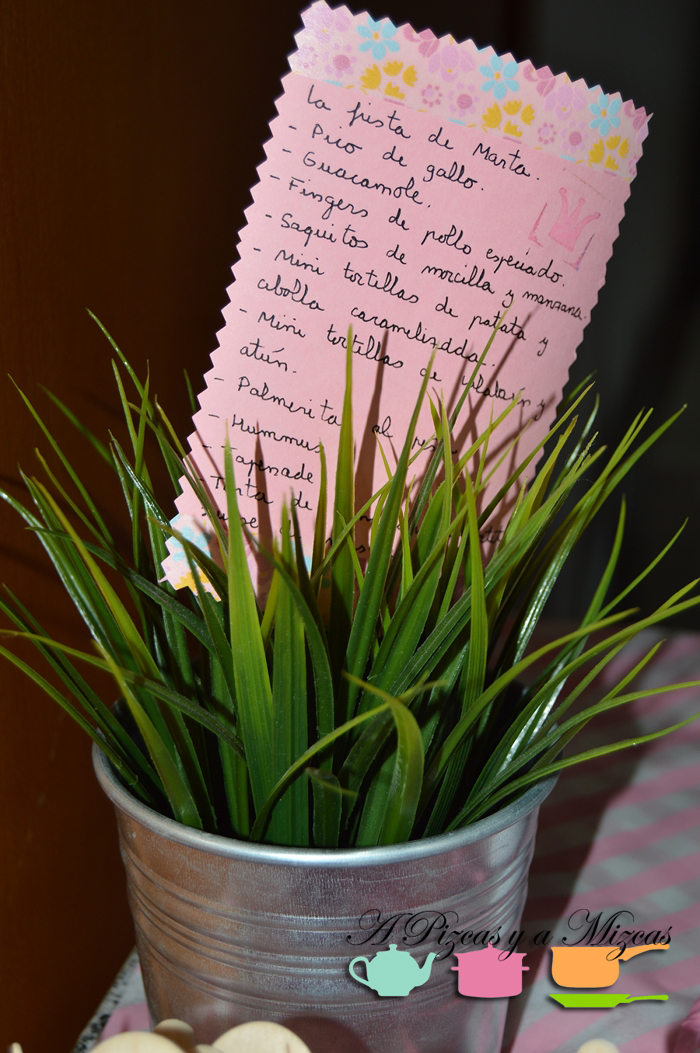 La fiesta de Marta.
- Pico de gallo.
- Guacamole.
- Fingers de pollo especiado.
- Saquitos de morcilla y manzana.
- Mini tortillas de patata y
cebolla caramelizada.
- Mini tortillas de y
atún.
- Palmerita al
- Hummus
- Tapenade
- Tarta de
A Pizcas y a Mizcas